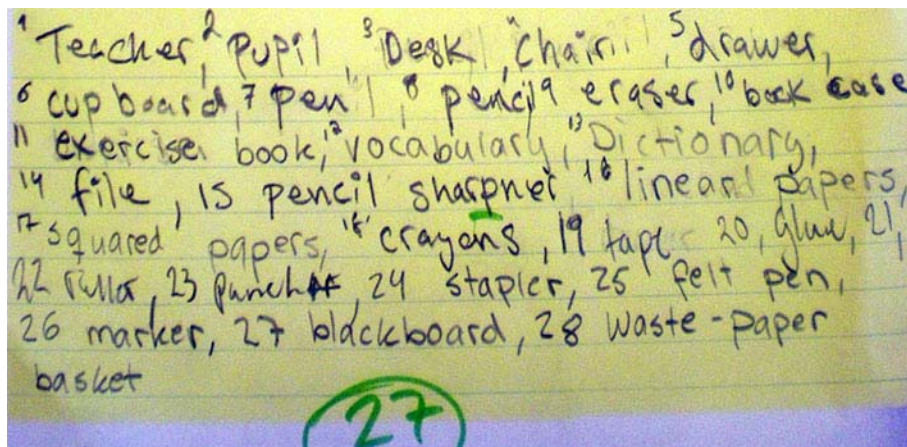 1 Teacher, 2 Pupil, 3 Desk, 4 Chair, 5 drawer,
6 cupboard, 7 pen, 8 pencil 9 eraser, 10 book case
11 exercise book, 12 vocabulary, 13 Dictionary,
14 file, 15 pencil sharpner 16 lineard papers,
17 squared papers, 18 crayons, 19 tape 20, Glue, 21,
22 , 23 punch, 24 stapler, 25 felt pen,
26 marker, 27 blackboard, 28 waste-paper
basket
27